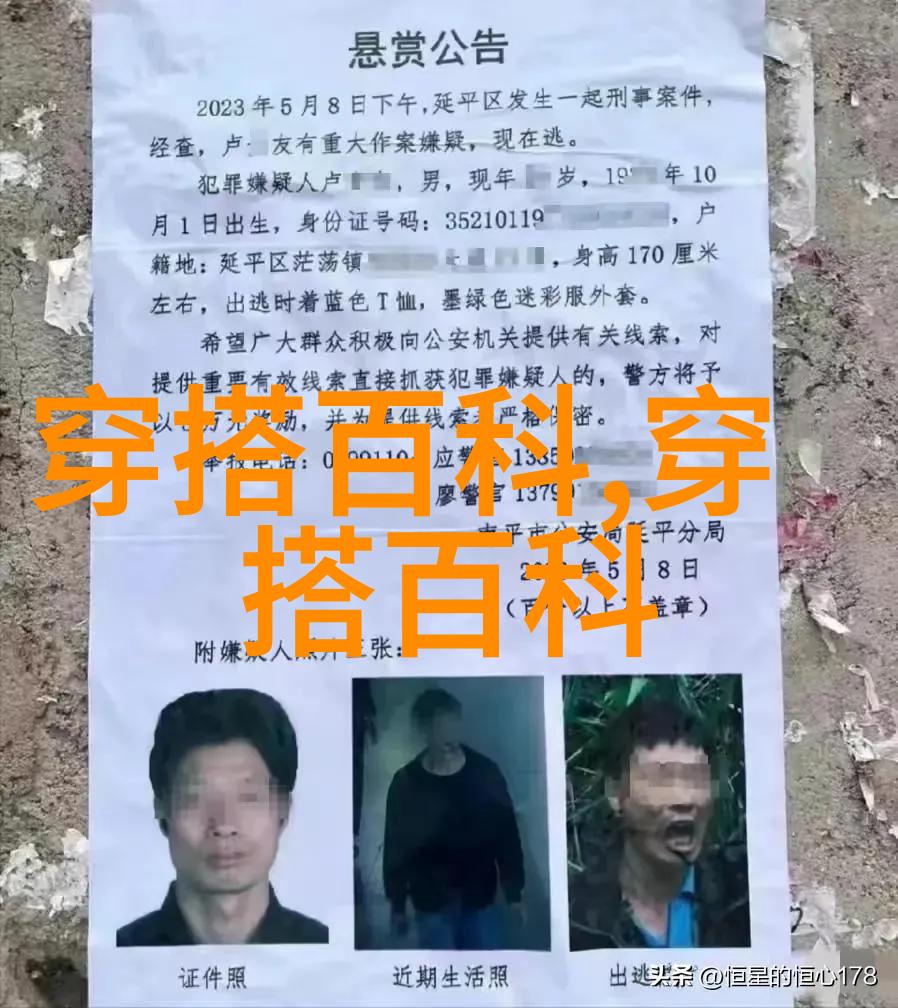 悬赏公告
2023年5月8日下午,延平区发生一起刑事案件,
经查,卢 友有重大作案嫌疑,现在逃。
犯罪嫌疑人卢 ,男,现年 岁,19 年10
月1日出生,身份证号码:35210119 ,户
籍地:延平区茫荡镇 ,身高170厘米
左右,出逃时着蓝色T恤,墨绿色迷彩服外套。
希望广大群众积极向公安机关提供有关线索,对
提供重要有效线索直接抓获犯罪嫌疑人的,警方将予
以 万元奖励,并为提供线索 严格保密。
穿搭百科,穿
搭百科
举报电话:0 应警官1385
廖警官1379
南平市公安局延平分局
年5月8日
附嫌疑人照片三张:
证件照
近期生活照
出逃
头条 @恒星的恒心178